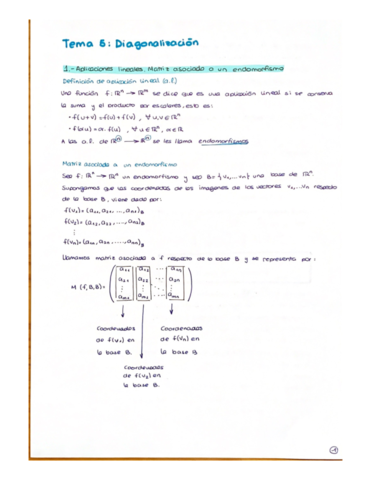 Tema 5: Diagonalización
1.- Aplicaciones lineales. Matriz asociada a un endomorfismo
Definición de aplicación lineal (a.l)
Una función f: ℝⁿ → ℝᵐ se dice que es una aplicación lineal si se conserva
la suma y el producto por escalares, esto es:
- f(u+v) = f(u) + f(v) , ∀ u,v ∈ ℝⁿ
- f(αu) = α. f(u) , ∀ u ∈ ℝⁿ,
A las a.l. de ℝⁿ → ℝⁿ se les llama endomorfismos
Matriz asociada a un endomorfismo
Sea f: ℝⁿ → ℝⁿ un endomorfismo y sea B = {v₁,...} una base de ℝⁿ.
Supongamos que las coordenadas de las imagenes de los vectores v₁,...vn respecto
de la base B, viene dado por:
f(v₁) = (a₁₁, a₂₁, ..., an₁)B
f(v₂) = (a₁₂, a₂₂, ..., an₂)B
⋮
f(vn) = (a₁n, a₂n, ..., ann)B
Llamamos matriz asociada a f respecto de la base B y se representa por:
a₁₁ a₁₂ ... a₁n
a₂₁ a₂₂ ... a₂n
M (f,B,B) =
⋮ ⋮ ⋱ ⋮
an₁ an₂ ... ann
Coordenadas Coordenadas
de f(v₁) en de f(vn) en
la base B la base B.
Coordenadas
de f(v₂) en
la base B.
1